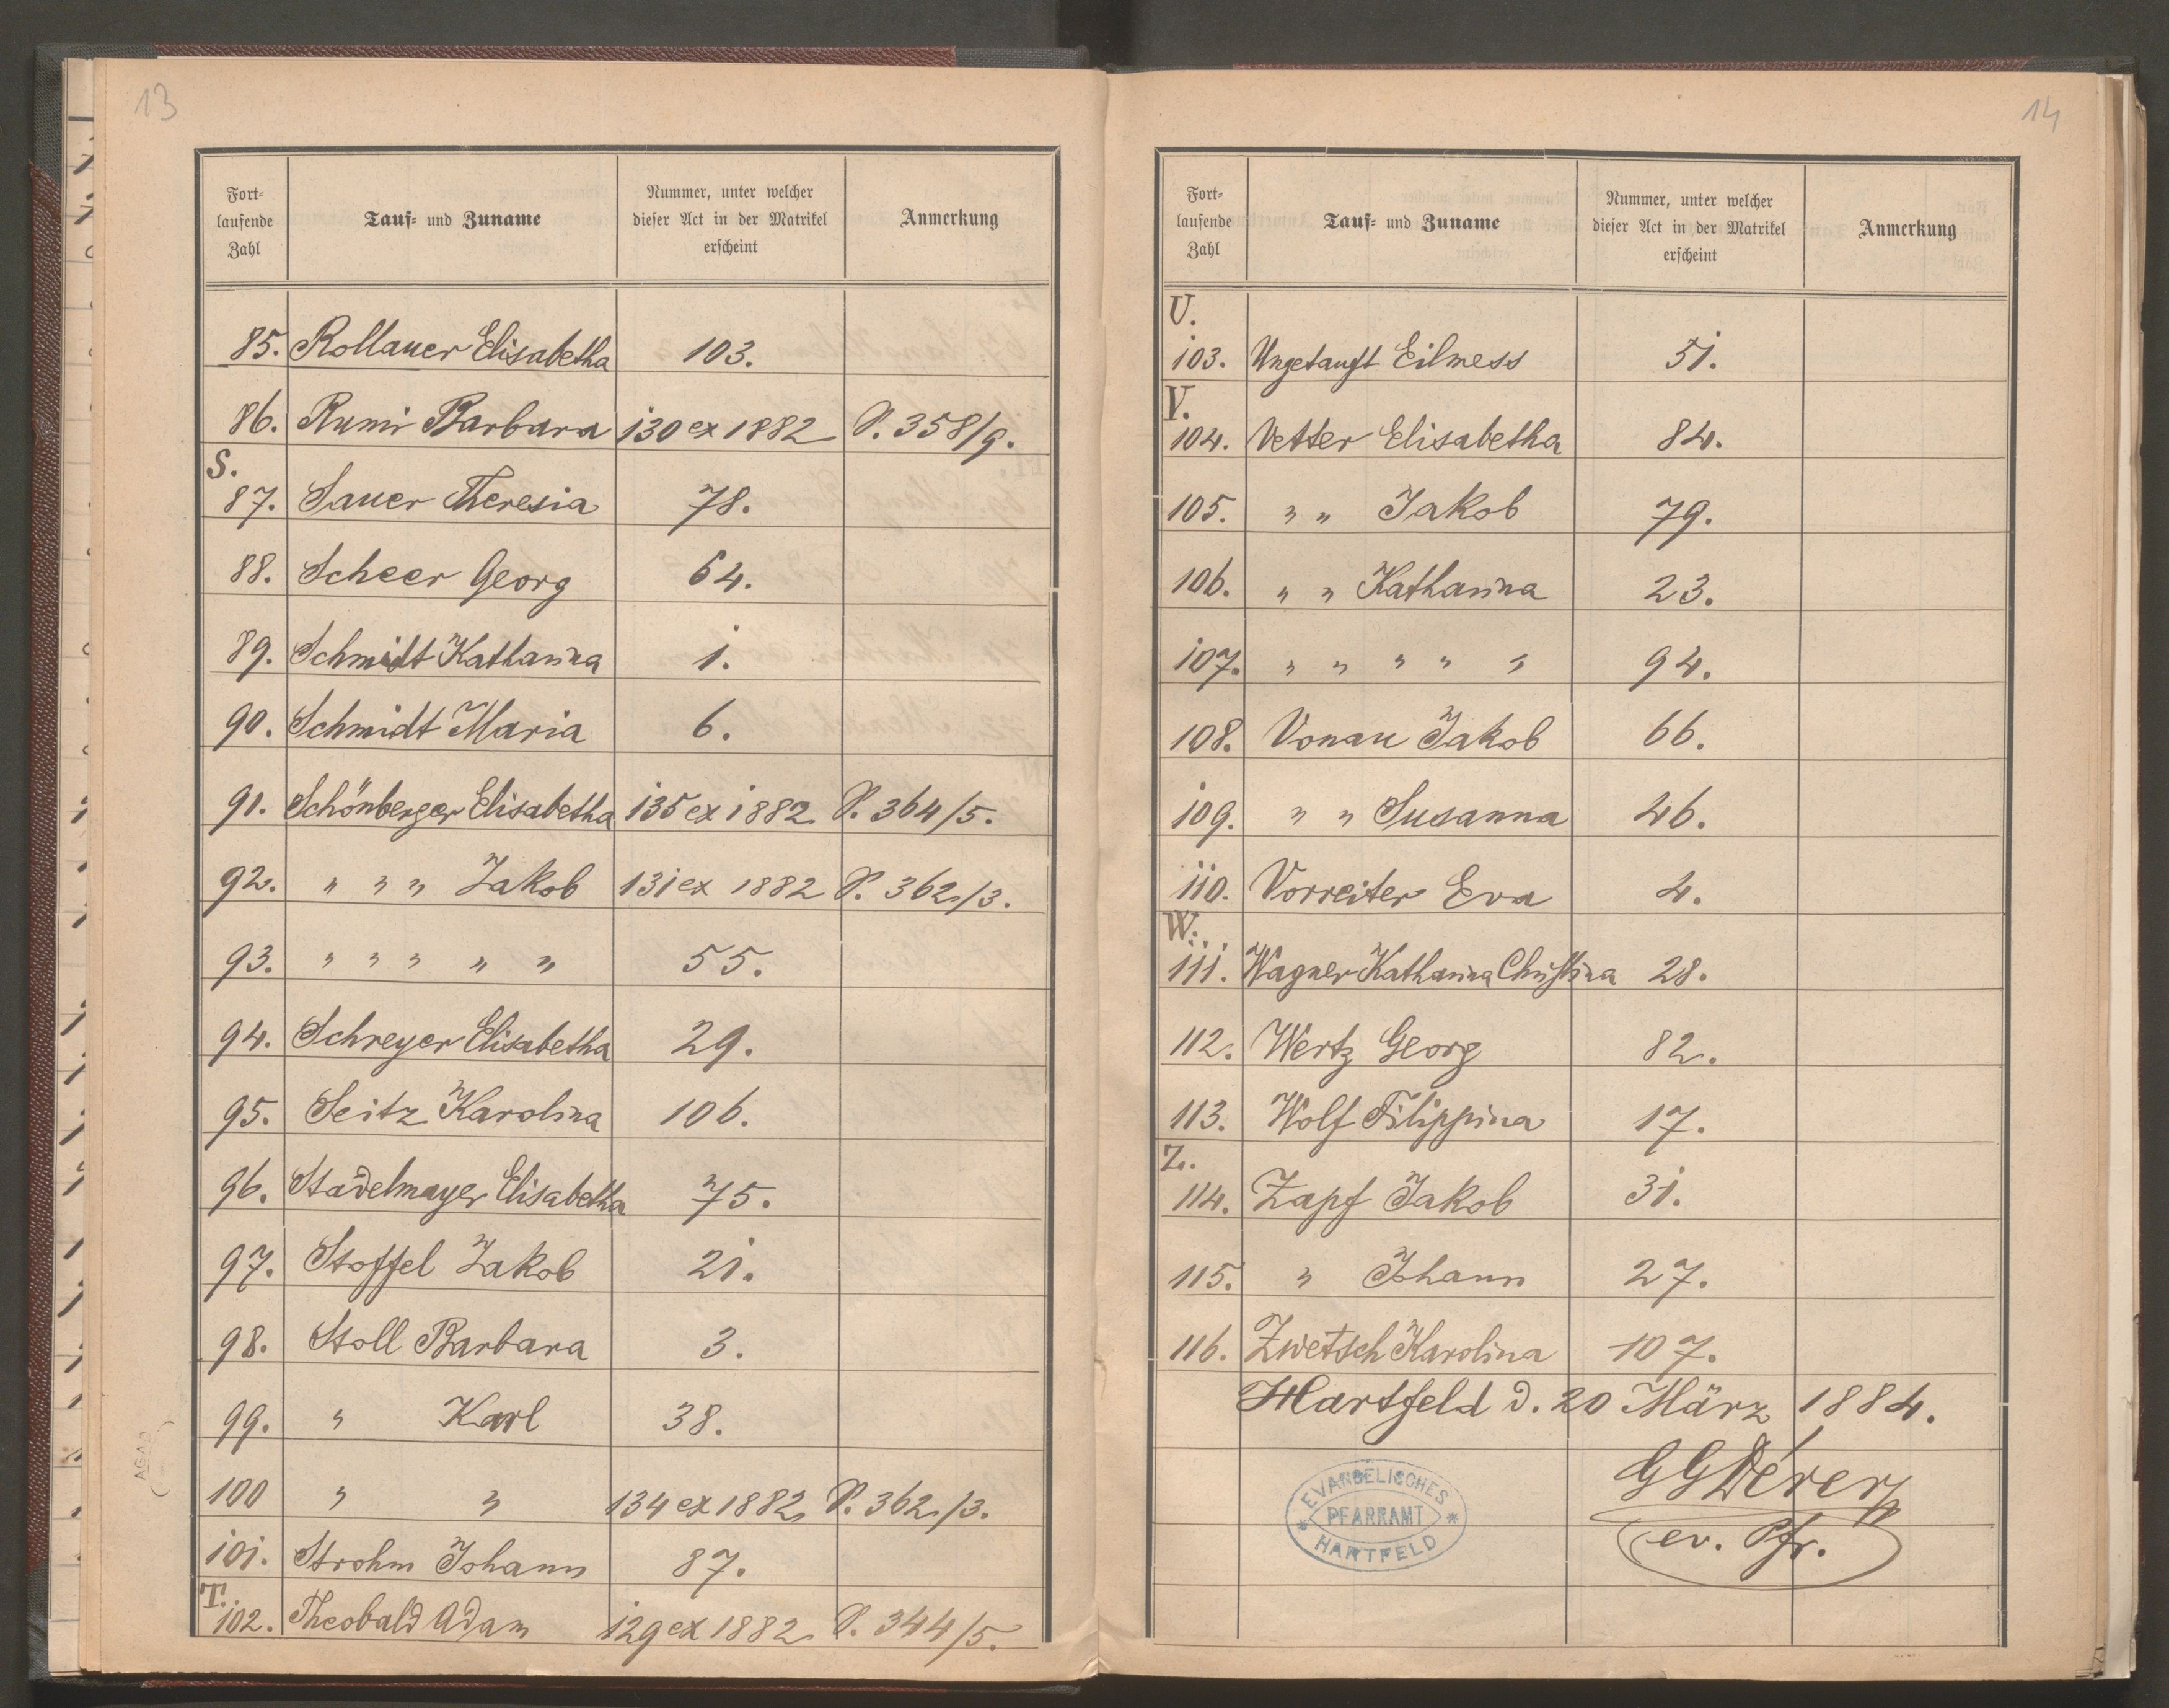 13
Fort-
laufende
Zahl
Tauf- und Zuname
Nummer, unter welcher
dieser Act in der Matrikel
erscheint
Anmerkung
85. Rollauer Elisabetha 103.
86. Rumi Barbara 130 ex 1882 P. 358/9.
S.
87. Sauer Theresia 78.
88. Scheer Georg 64.
89. Schmidt Katharina 1.
90. Schmidt Maria 6.
91. Schönberger Elisabetha 135 ex 1882 P. 364/5.
92. " " " Jakob 131 ex 1882 P. 362/3.
93. " " " " " 55.
94. Schreyer Elisabetha 29.
95. Seitz Karolina 106.
96. Stadelmayer Elisabetha 75.
97. Stoffel Jakob 21.
98. Stoll Barbara 3.
99. " Karl 38.
100 " " 134 ex 1882 P. 362/3.
101. Strohm Johann 87.
T.
102. Theobald Adam 129 ex 1882 P. 344/5.
AGAD
14
Fort-
laufende
Zahl
Tauf- und Zuname
Nummer, unter welcher
dieser Act in der Matrikel
erscheint
Anmerkung
U.
103. Ungetauft Eilmess 51.
V.
104. Vetter Elisabetha 84.
105. " " Jakob 79.
106. " " Katharina 23.
107. " " " " " 94.
108. Vonau Jakob 66.
109. " " Susanna 46.
110. Vorreiter Eva 4.
W.
111. Wagner Katharina Christina 28.
112. Wertz Georg 82.
113. Wolf Filippina 17.
Z.
114. Zapf Jakob 31.
115. " Johann 27.
116. Zwetsch Karolina 107.
Hartfeld d. 20 März 1884.
EVANGELISCHES
PFARRAMT
HARTFELD
GGDérer
ev. Pfr.